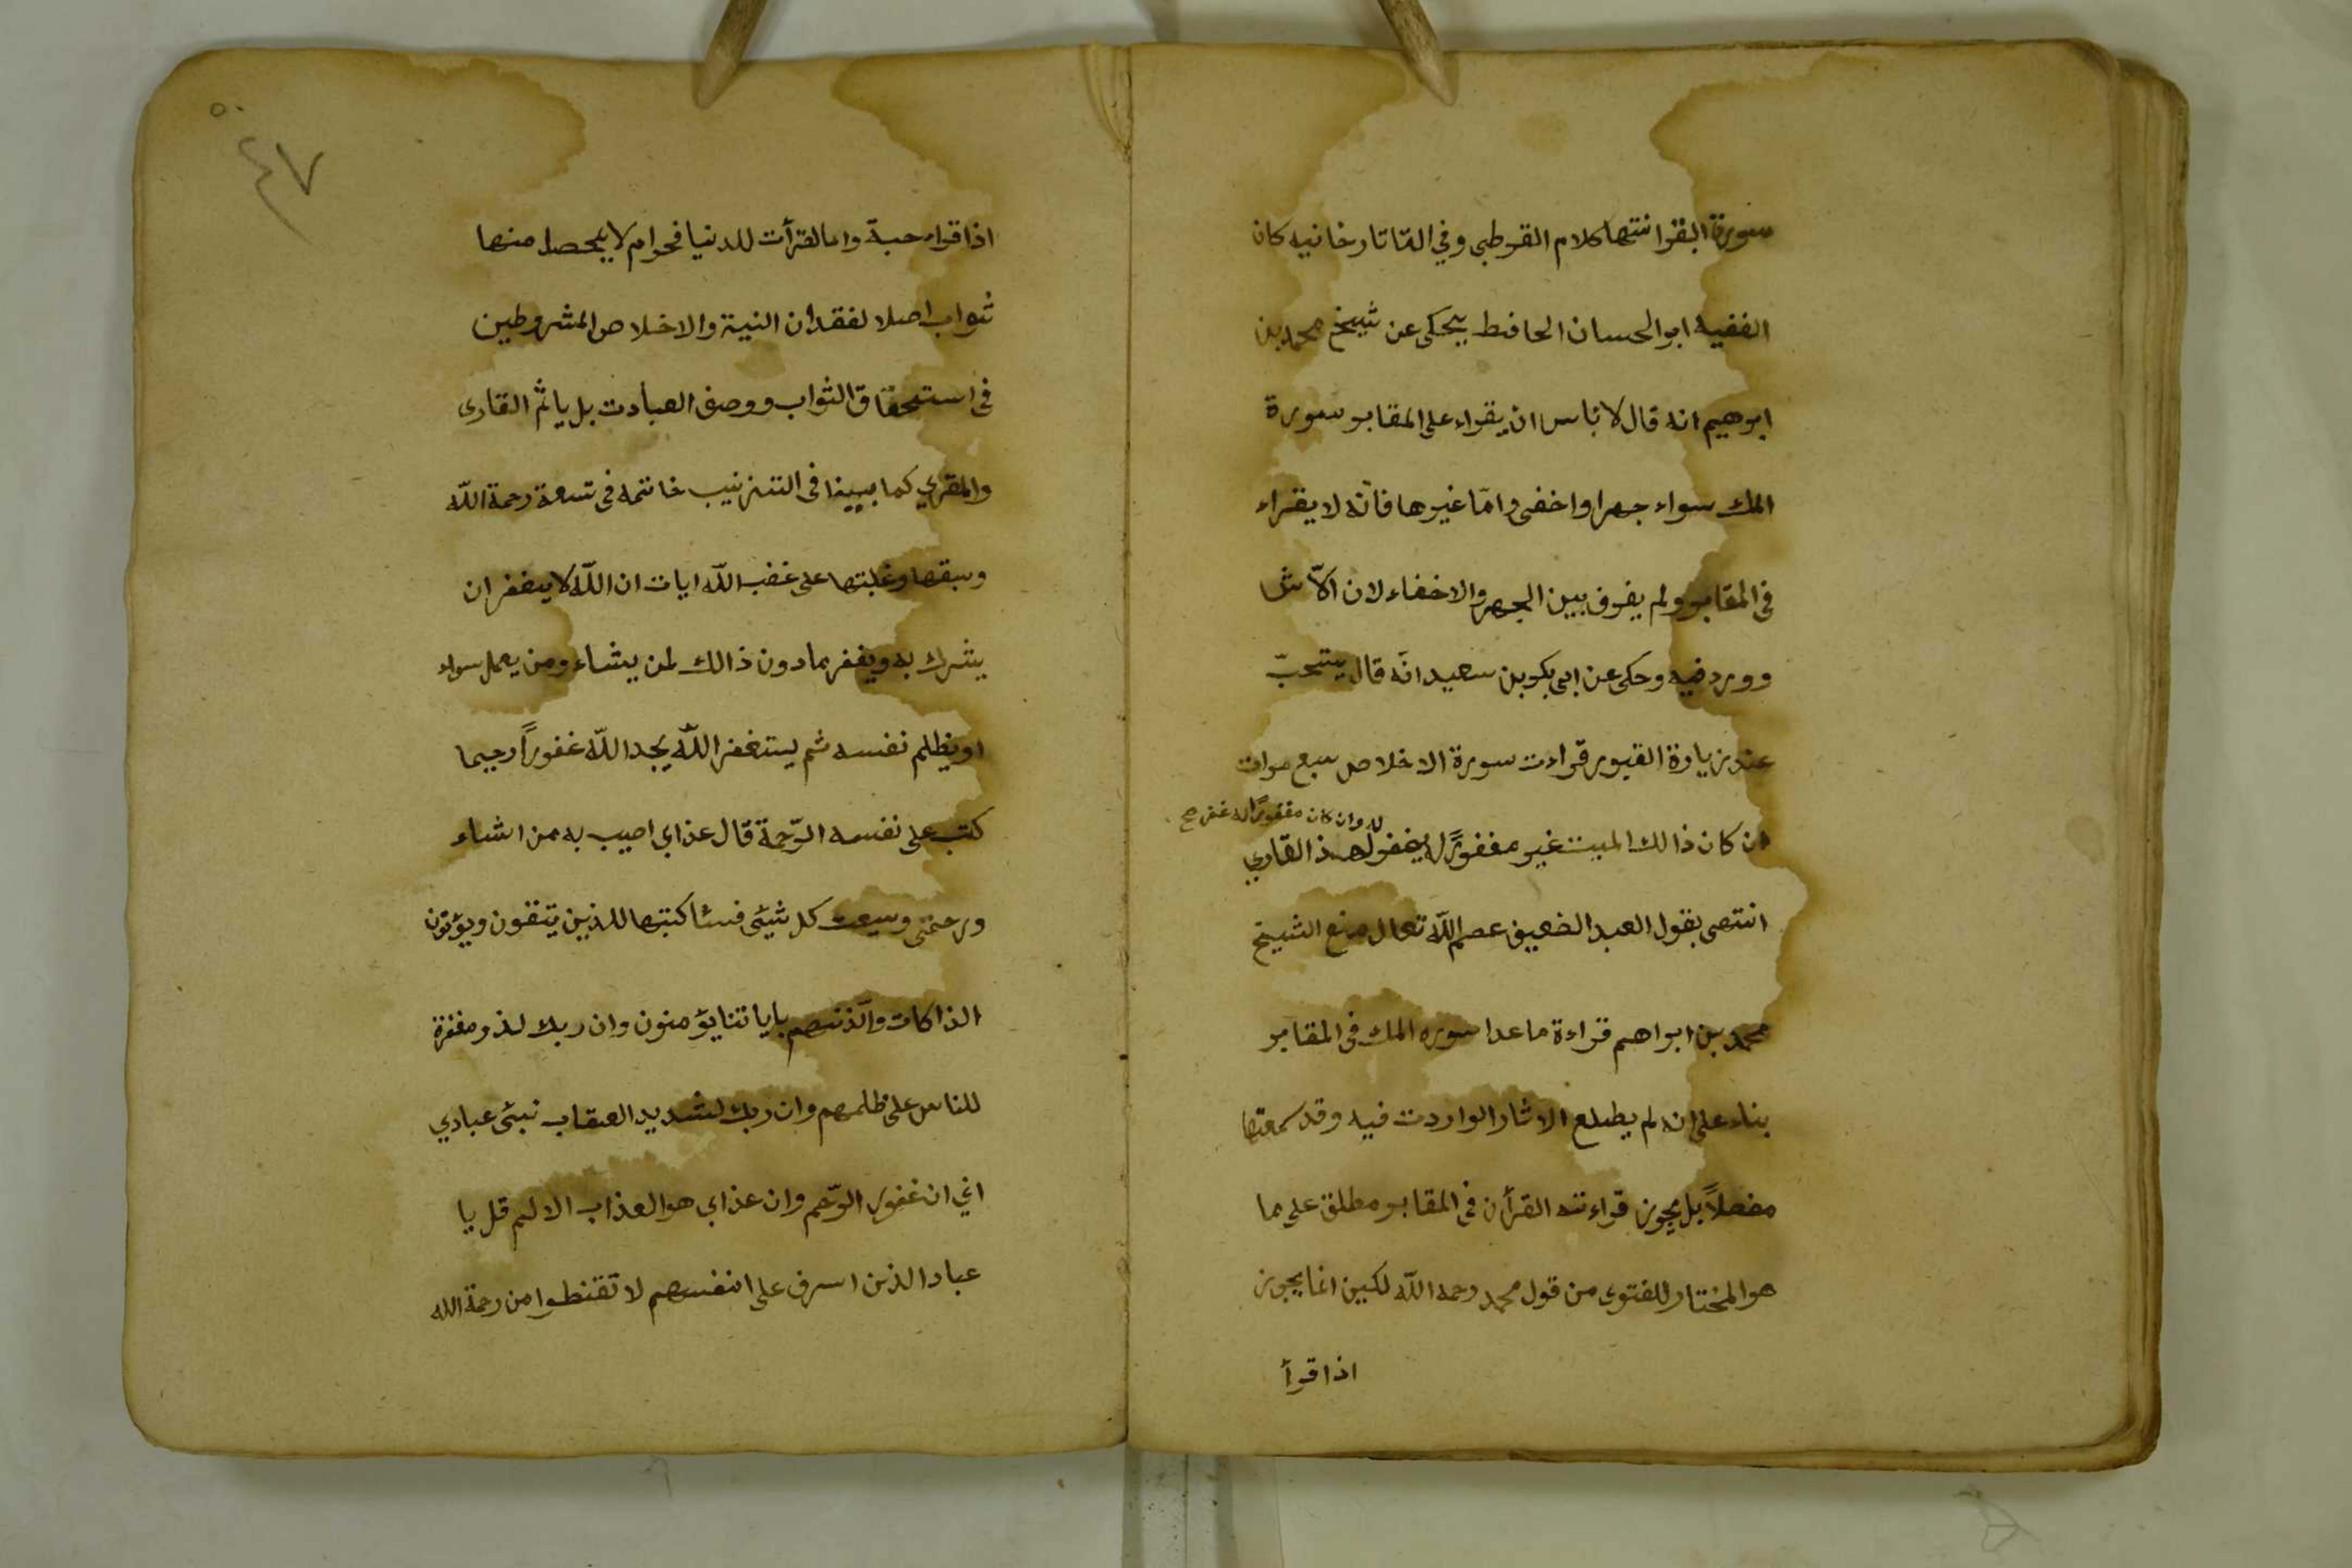 سورة البقرا نتهىا كلام القرطبي وفي التاتارخانيه كان
الفقيه ابو الحسان الحافط يحكى عن شيخ محمد بن
ابرهيم انه قال لا بأس ان يقراء على المقابر سورة
الملك سواء جهرا واخفى واما غيرها فانه لا يقراء
فى المقابر ولم يفرق بين الجهر والاخفاء لان الآثا
وورد فيه وحكى عن ابى بكر بن سعيد انه قال يستحبّ
عند زيارة القبور قراءت سورة الاخلاص سبع مرات
له وان كان مغفورًا له غفر صح
ان كان ذالك الميت غير مغفورًا له يغفر لهذ القاري
انتهى بقول العبد الضعيف عصم اللّه تعالى منع الشيخ
محمد بن ابراهم قراءة ما عدا سوره الملك فى المقابر
بناء على انه لم يطلع الاثار الواردت فيه وقد سمعتها
مفصلاً بل يجوز قراءته القرأن فى المقابر مطلق على ما
هو المختار للفتوى من قول محمد رحمه اللّه لكين انما يجوز
اذا قرأ
٥٠
٤٧
اذا قراء حبة واما القرأت للدنيا فحرام لا يحصل منها
ثواب اصلا لفقدان النية والاخلاص المشروطين
فى استحقاق الثواب ووصف العبادت بل ياثم القارى
والمقري كما بيينا فى التزنيب خاتمه فى تسعة رحمة اللّه
وسبقها وغلبتها على غضب اللّه ايات ان اللّه لا يبغفر ان
يشرك به ويغفر مادون ذالك لمن يشاء ومن يعمل سواء
او يظلم نفسه ثم يستغفر اللّه يجد اللّه غفوراً رحيما
كتب على نفسه الرّحمة قال عذابي اصيب به من اشاء
ورحمتى وسيعت كل شيئى فسئاكتبها للذين يتقون ويؤتون
الذاكات والّذنهم باياتنا يؤمنون وان ربك لذو مغفرة
للناس على ظلمهم وان ربك لشديد العقاب نبئى عبادي
اني ان غفور الرّحم وان عذابي هو العذاب الالم قل يا
عباد الذن اسرف على انفسهم لا تقنطوا من رحمة الله